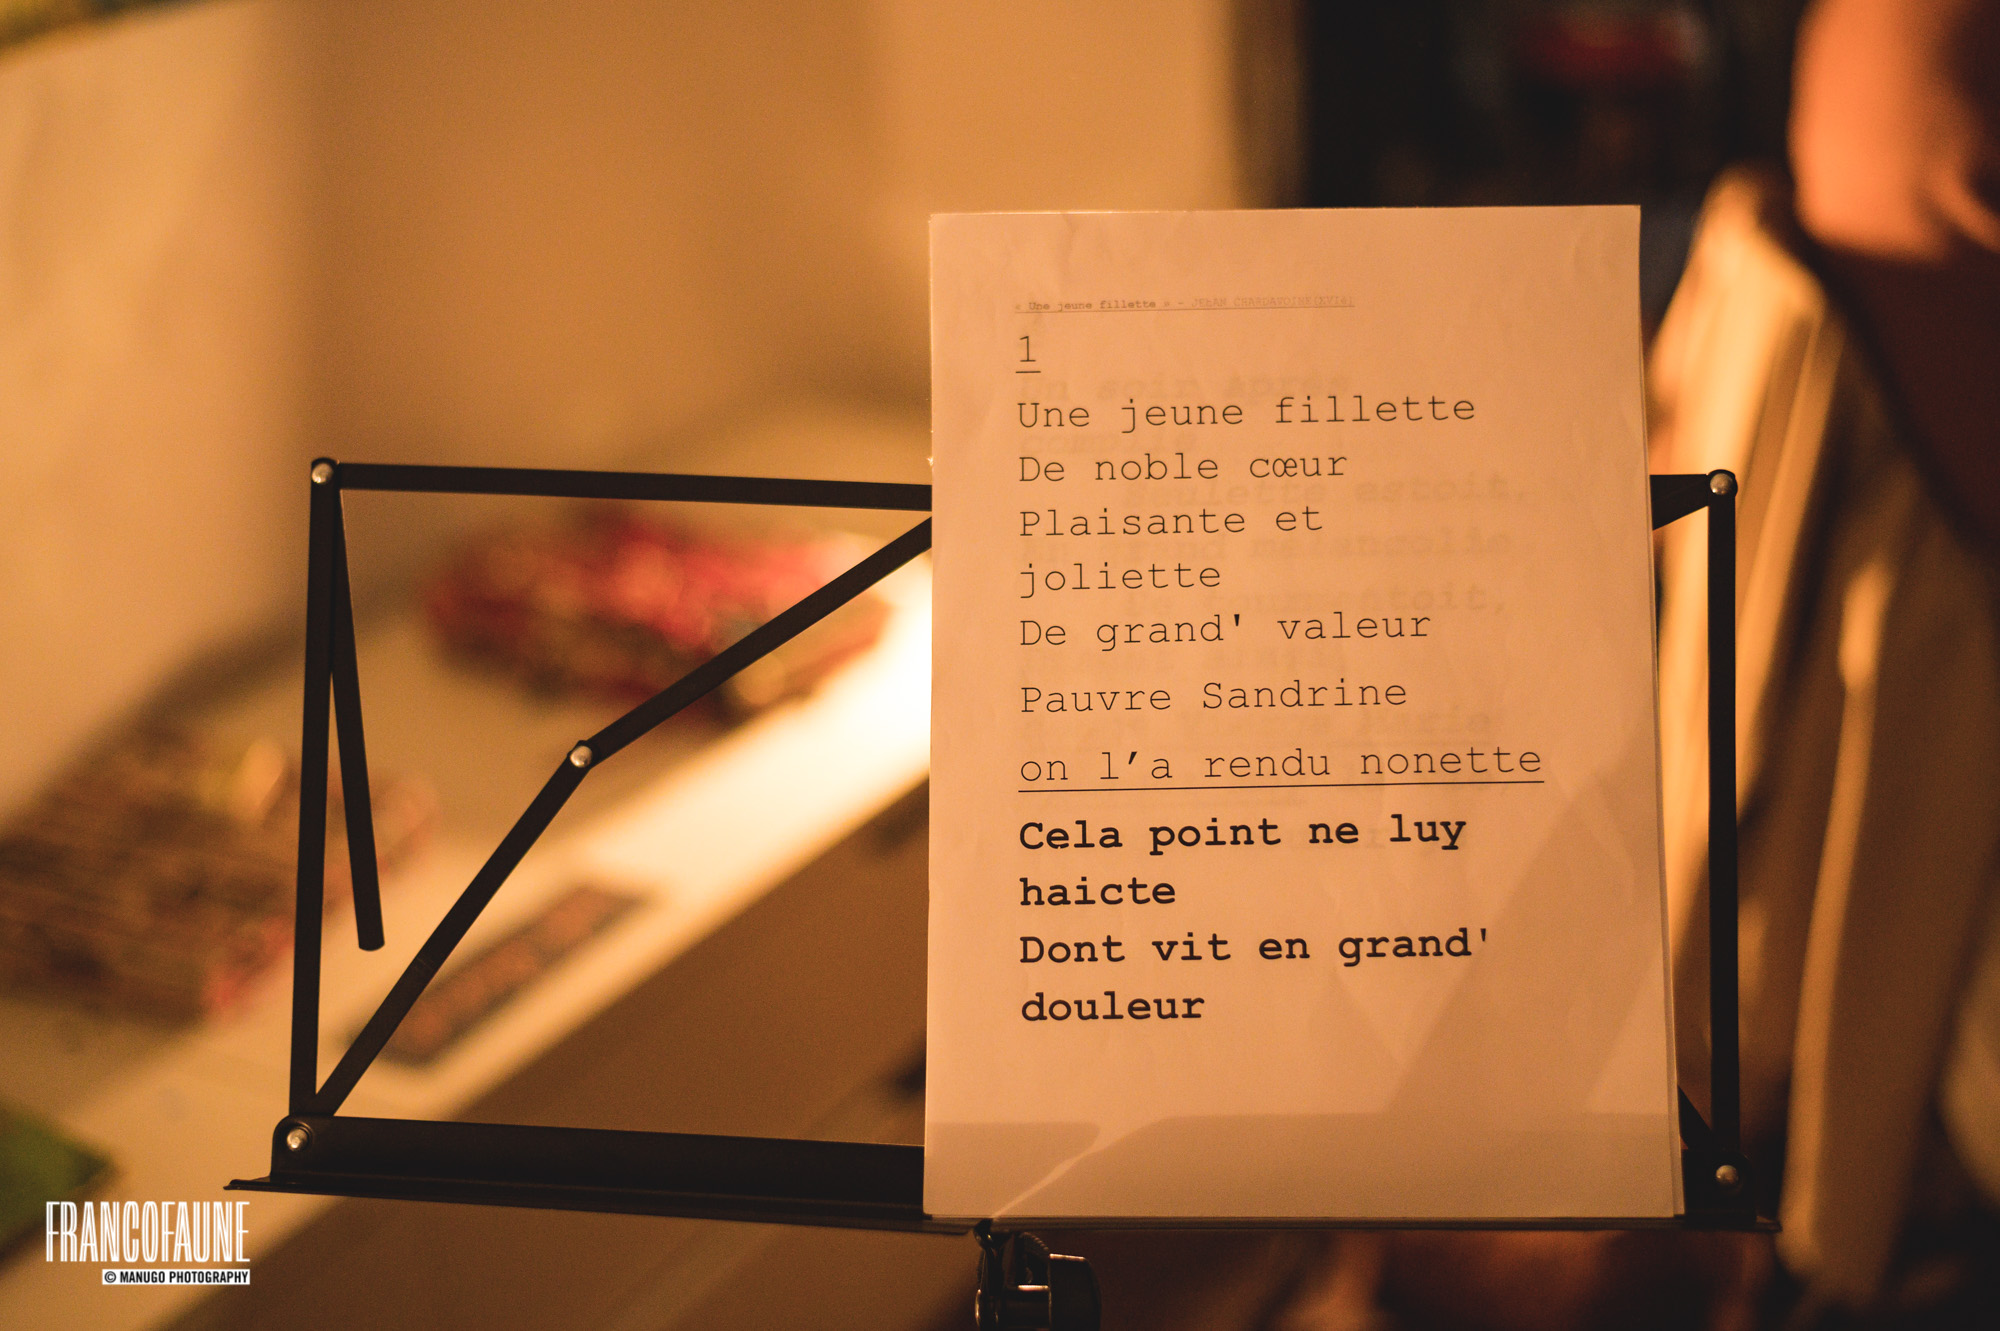 « Une jeune fillette » - JEHAN CHARDAVOINE(XVIe)
1
Une jeune fillette
De noble cœur
Plaisante et
joliette
De grand' valeur
Pauvre Sandrine
on l’a rendu nonette
Cela point ne luy
haicte
Dont vit en grand'
douleur
FRANCOFAUNE
© MANUGO PHOTOGRAPHY